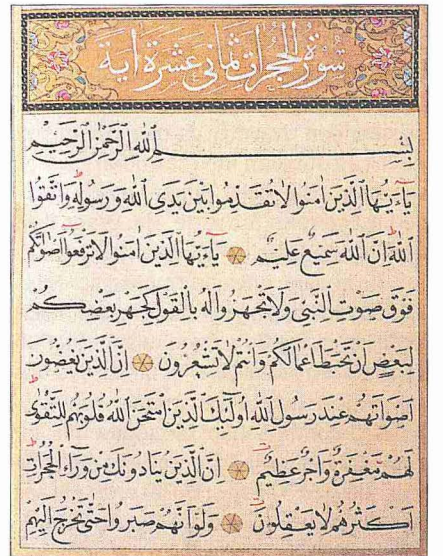 سورة الحجرات ثمانی عشرة اية
بِسْمِ اللهِ الرَّحْمٰنِ الرَّحِيمِ
يَاءَيُّهَا الَّذِينَ اٰمَنُوا لَا تُقَدِّمُوا بَيْنَ يَدَىِ اللهِ وَرَسُولِهِ وَاتَّقُوا
اللهَ اِنَّ اللهَ سَمِيعٌ عَلِيمٌ يَاءَيُّهَا الَّذِينَ اٰمَنُوا لَا تَرْفَعُوا اَصْوَاتَكُمْ
فَوْقَ صَوْتِ النَّبِىِّ وَلَا تَجْهَرُوا لَهُ بِالْقَوْلِ كَجَهْرِ بَعْضِكُمْ
لِبَعْضٍ اَنْ تَحْبَطَ اَعْمَالُكُمْ وَاَنْتُمْ لَا تَشْعُرُونَ اِنَّ الَّذِينَ يَغُضُّونَ
اَصْوَاتَهُمْ عِنْدَ رَسُولِ اللهِ اُولٰئِكَ الَّذِينَ امْتَحَنَ اللهُ قُلُوبَهُمْ لِلتَّقْوٰى
لَهُمْ مَغْفِرَةٌ وَاَجْرٌ عَظِيمٌ اِنَّ الَّذِينَ يُنَادُونَكَ مِنْ وَرَاءِ الْحُجُرَاتِ
اَكْثَرُهُمْ لَا يَعْقِلُونَ وَلَوْ اَنَّهُمْ صَبَرُوا حَتّٰى تَخْرُجَ اِلَيْهِمْ